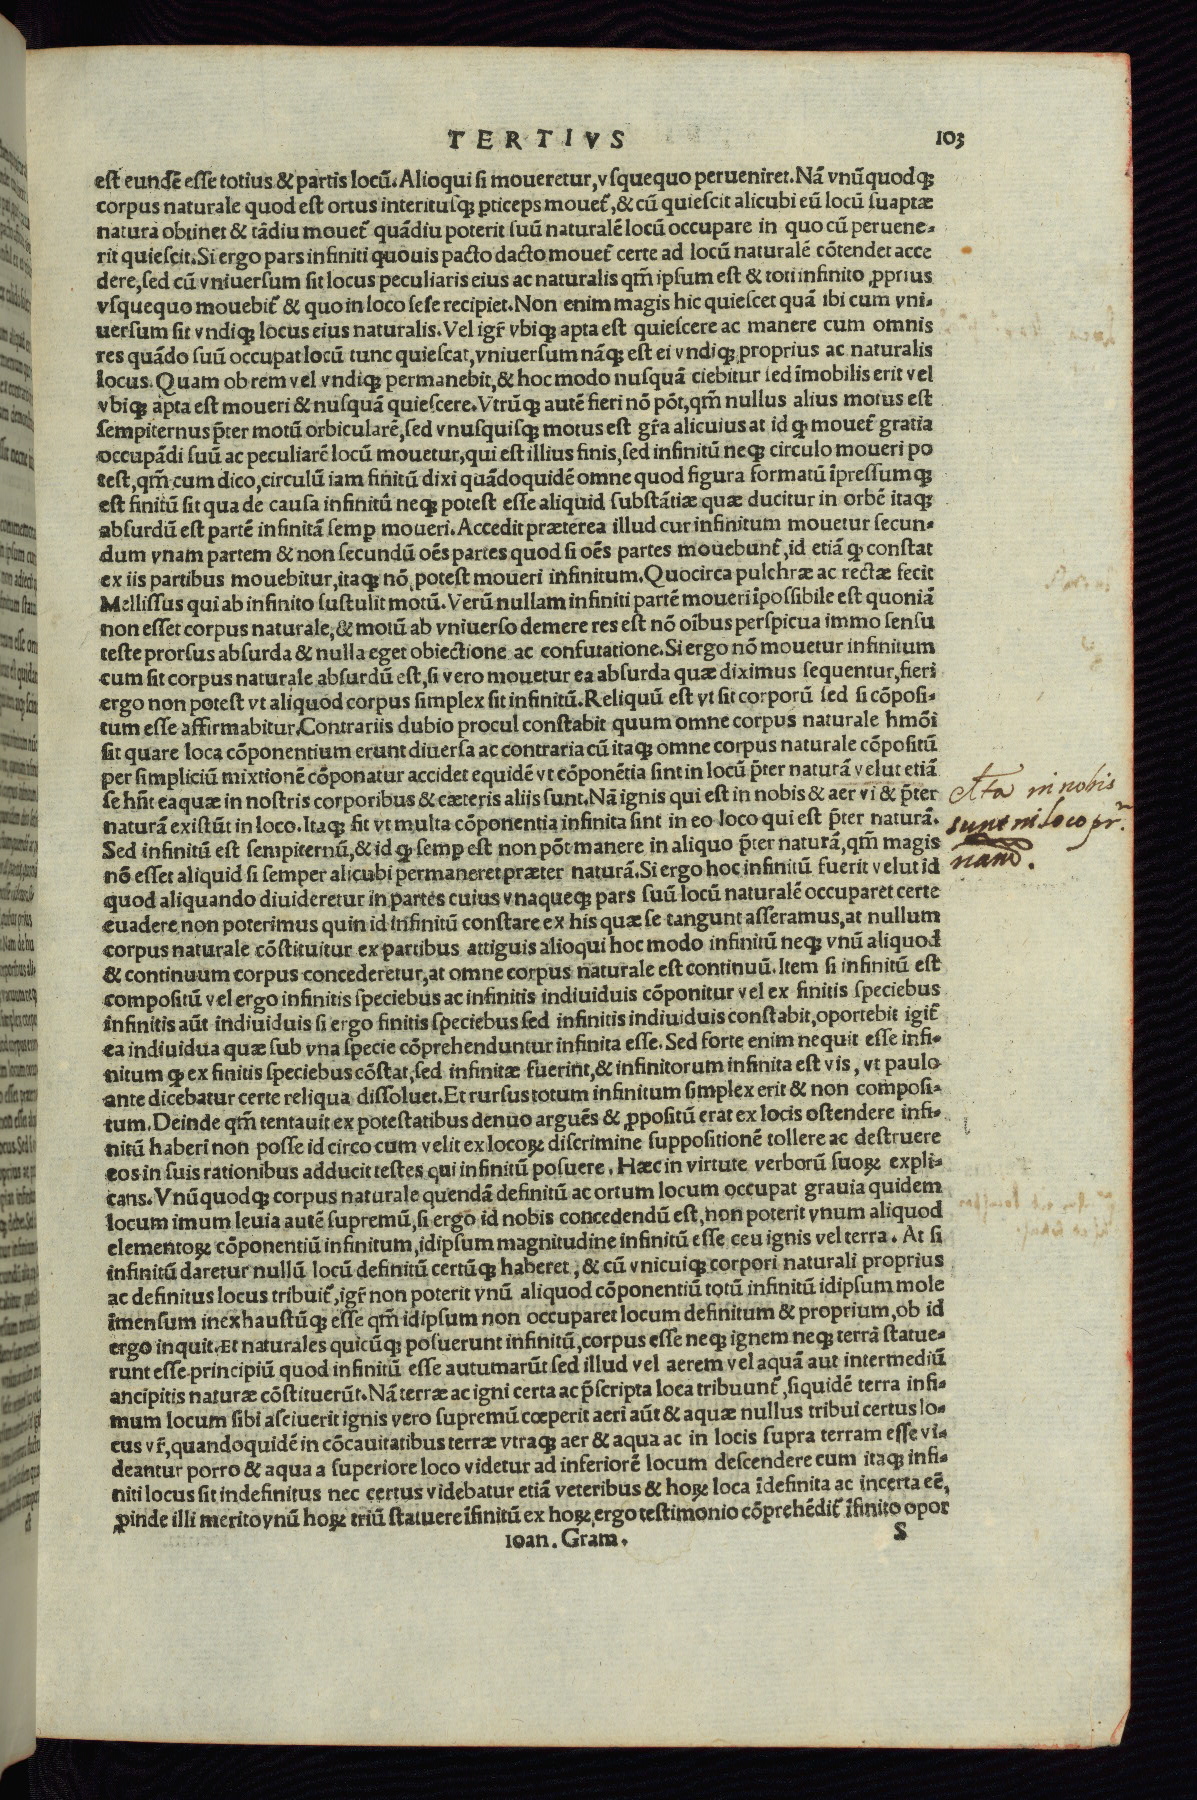 TERTIVS 103
est eundẽ esse totius & partis locũ. Alioqui si moueretur, vsquequo perueniret. Nã vnũquodqꝫ
corpus naturale quod est ortus interitusqꝫ ꝑticeps mouet᷑, & cũ quiescit alicubi eũ locũ suaptæ
natura obtinet & tãdiu mouet᷑ quãdiu poterit suũ naturalẽ locũ occupare in quo cũ peruene-
rit quiescit. Si ergo pars infiniti quouis pacto dacto mouet᷑ certe ad locũ naturalẽ cõtendet acce
dere, sed cũ vniuersum sit locus peculiaris eius ac naturalis qm̃ ipsum est & toti infinito ꝓprius
vsquequo mouebit᷑ & quo in loco sese recipiet. Non enim magis hic quiescet quã ibi cum vni-
uersum sit vndiqꝫ locus eius naturalis. Vel igr̃ vbiqꝫ apta est quiescere ac manere cum omnis
res quãdo suũ occupat locũ tunc quiescat, vniuersum nãqꝫ est ei vndiqꝫ proprius ac naturalis
locus. Quam ob rem vel vndiqꝫ permanebit, & hoc modo nusquã ciebitur sed ĩmobilis erit vel
vbiqꝫ apta est moueri & nusquã quiescere. Vtrũqꝫ autẽ fieri nõ põt, qm̃ nullus alius motus est
sempiternus p̃ter motũ orbicularẽ, sed vnusquisqꝫ motus est gr̃a alicuius at id ꝙ mouet᷑ gratia
occupãdi suũ ac peculiarẽ locũ mouetur, qui est illius finis, sed infinitũ neqꝫ circulo moueri po
test, qm̃ cum dico, circulũ iam finitũ dixi quãdoquidẽ omne quod figura formatũ ĩpressumqꝫ
est finitũ sit qua de causa infinitũ neqꝫ potest esse aliquid substãtiæ quæ ducitur in orbẽ itaqꝫ
absurdũ est partẽ infinitã semꝑ moueri. Accedit præterea illud cur infinitum mouetur secun-
dum vnam partem & non secundũ oẽs partes quod si oẽs partes mouebunt᷑, id etiã ꝙ constat
ex iis partibus mouebitur, itaqꝫ nõ potest moueri infinitum. Quocirca pulchræ ac rectæ fecit
Mellissus qui ab infinito sustulit motũ. Verũ nullam infiniti partẽ moueri ĩpossibile est quoniã
non esset corpus naturale, & motũ ab vniuerso demere res est nõ oĩbus perspicua immo sensu
teste prorsus absurda & nulla eget obiectione ac confutatione. Si ergo nõ mouetur infinitum
cum sit corpus naturale absurdũ est, si vero mouetur ea absurda quæ diximus sequentur, fieri
ergo non potest vt aliquod corpus simplex sit infinitũ. Reliquũ est vt sit corporũ sed si cõposi-
tum esse affirmabitur. Contrariis dubio procul constabit quum omne corpus naturale hmõi
sit quare loca cõponentium erunt diuersa ac contraria cũ itaqꝫ omne corpus naturale cõpositũ
per simpliciũ mixtionẽ cõponatur accidet equidẽ vt cõponẽtia sint in locũ p̃ter naturã velut etiã
se hñt ea quæ in nostris corporibus & cæteris aliis sunt. Nã ignis qui est in nobis & aer vi & p̃ter
naturã existũt in loco. Itaqꝫ fit vt multa cõponentia infinita sint in eo loco qui est p̃ter naturã.
Sed infinitũ est sempiternũ, & id ꝙ semꝑ est non põt manere in aliquo p̃ter naturã, qm̃ magis
nõ esset aliquid si semper alicubi permaneret præter naturã. Si ergo hoc infinitũ fuerit velut id
quod aliquando diuideretur in partes cuius vnaqueqꝫ pars suũ locũ naturalẽ occuparet certe
euadere non poterimus quin id infinitũ constare ex his quæ se tangunt asseramus, at nullum
corpus naturale cõstituitur ex partibus attiguis alioqui hoc modo infinitũ neqꝫ vnũ aliquod
& continuum corpus concederetur, at omne corpus naturale est continuũ. Item si infinitũ est
compositũ vel ergo infinitis speciebus ac infinitis indiuiduis cõponitur vel ex finitis speciebus
infinitis aũt indiuiduis si ergo finitis speciebus sed infinitis indiuiduis constabit, oportebit igit᷑
ea indiuidua quæ sub vna specie cõprehenduntur infinita esse. Sed forte enim nequit esse infi-
nitum ꝙ ex finitis speciebus cõstat, sed infinitæ fuerint, & infinitorum infinita est vis, vt paulo
ante dicebatur certe reliqua dissoluet. Et rursus totum infinitum simplex erit & non composi-
tum. Deinde qm̃ tentauit ex potestatibus denuo arguẽs & ꝓpositũ erat ex locis ostendere infi-
nitũ haberi non posse id circo cum velit ex locoꝝ discrimine suppositionẽ tollere ac destruere
eos in suis rationibus adducit testes qui infinitũ posuere. Hæc in virtute verborũ suoꝝ expli-
cans. Vnũquodqꝫ corpus naturale quendã definitũ ac ortum locum occupat grauia quidem
locum imum leuia autẽ supremũ, si ergo id nobis concedendũ est, non poterit vnum aliquod
elementoꝝ cõponentiũ infinitum, idipsum magnitudine infinitũ esse ceu ignis vel terra. At si
infinitũ daretur nullũ locũ definitũ certũqꝫ haberet, & cũ vnicuiqꝫ corpori naturali proprius
ac definitus locus tribuit᷑, igr̃ non poterit vnũ aliquod cõponentiũ totũ infinitũ idipsum mole
ĩmensum inexhaustũqꝫ esse qm̃ idipsum non occuparet locum definitum & proprium, ob id
ergo inquit. Et naturales quicũqꝫ posuerunt infinitũ, corpus esse neqꝫ ignem neqꝫ terrã statue-
runt esse principiũ quod infinitũ esse autumarũt sed illud vel aerem vel aquã aut intermediũ
ancipitis naturæ cõstituerũt. Nã terræ ac igni certa ac p̃scripta loca tribuunt᷑, siquidẽ terra infi-
mum locum sibi asciuerit ignis vero supremũ cœperit aeri aũt & aquæ nullus tribui certus lo-
cus vr̃, quandoquidẽ in cõcauitatibus terræ vtraqꝫ aer & aqua ac in locis supra terram esse vi-
deantur porro & aqua a superiore loco videtur ad inferiorẽ locum descendere cum itaqꝫ infi-
niti locus sit indefinitus nec certus videbatur etiã veteribus & hoꝝ loca ĩdefinita ac incerta eẽ,
ꝓinde illi merito vnũ hoꝝ triũ statuere ĩfinitũ ex hoꝝ ergo testimonio cõprehẽdit᷑ ĩfinito opor
Ioan. Gram. S
Ita in nobis
sunt in loco pr̃
nam̃.